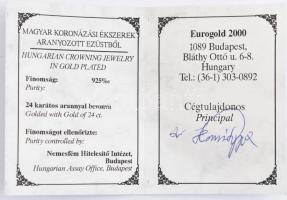 MAGYAR KORONÁZÁSI ÉKSZEREK
ARANYOZOTT EZÜSTBŐL
HUNGARIAN CROWNING JEWELRY
IN GOLD PLATED
Finomság: 925‰
Purity:
24 karátos arannyal bevonva
Golded with Gold of 24 ct.
Finomságot ellenőrizte:
Purity controlled by:
Nemesfém Hitelesítő Intézet,
Budapest
Hungarian Assay Office, Budapest
Eurogold 2000
1089 Budapest,
Bláthy Ottó u. 6-8.
Hungary
Tel.: (36-1) 303-0892
Cégtulajdonos
Principal